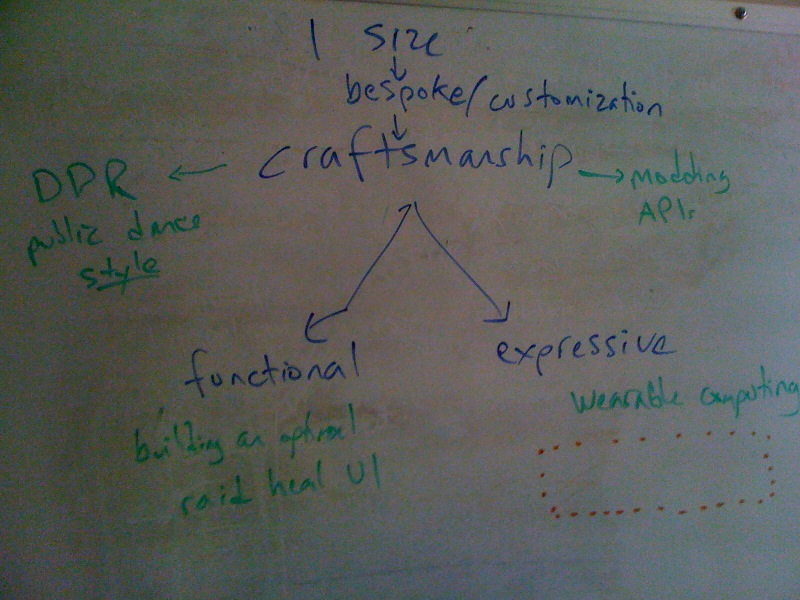 1 size
bespoke/customization
craftsmanship
DDR
public dance
style
modding
APIs
functional
expressive
building an optimal
raid heal UI
wearable computing